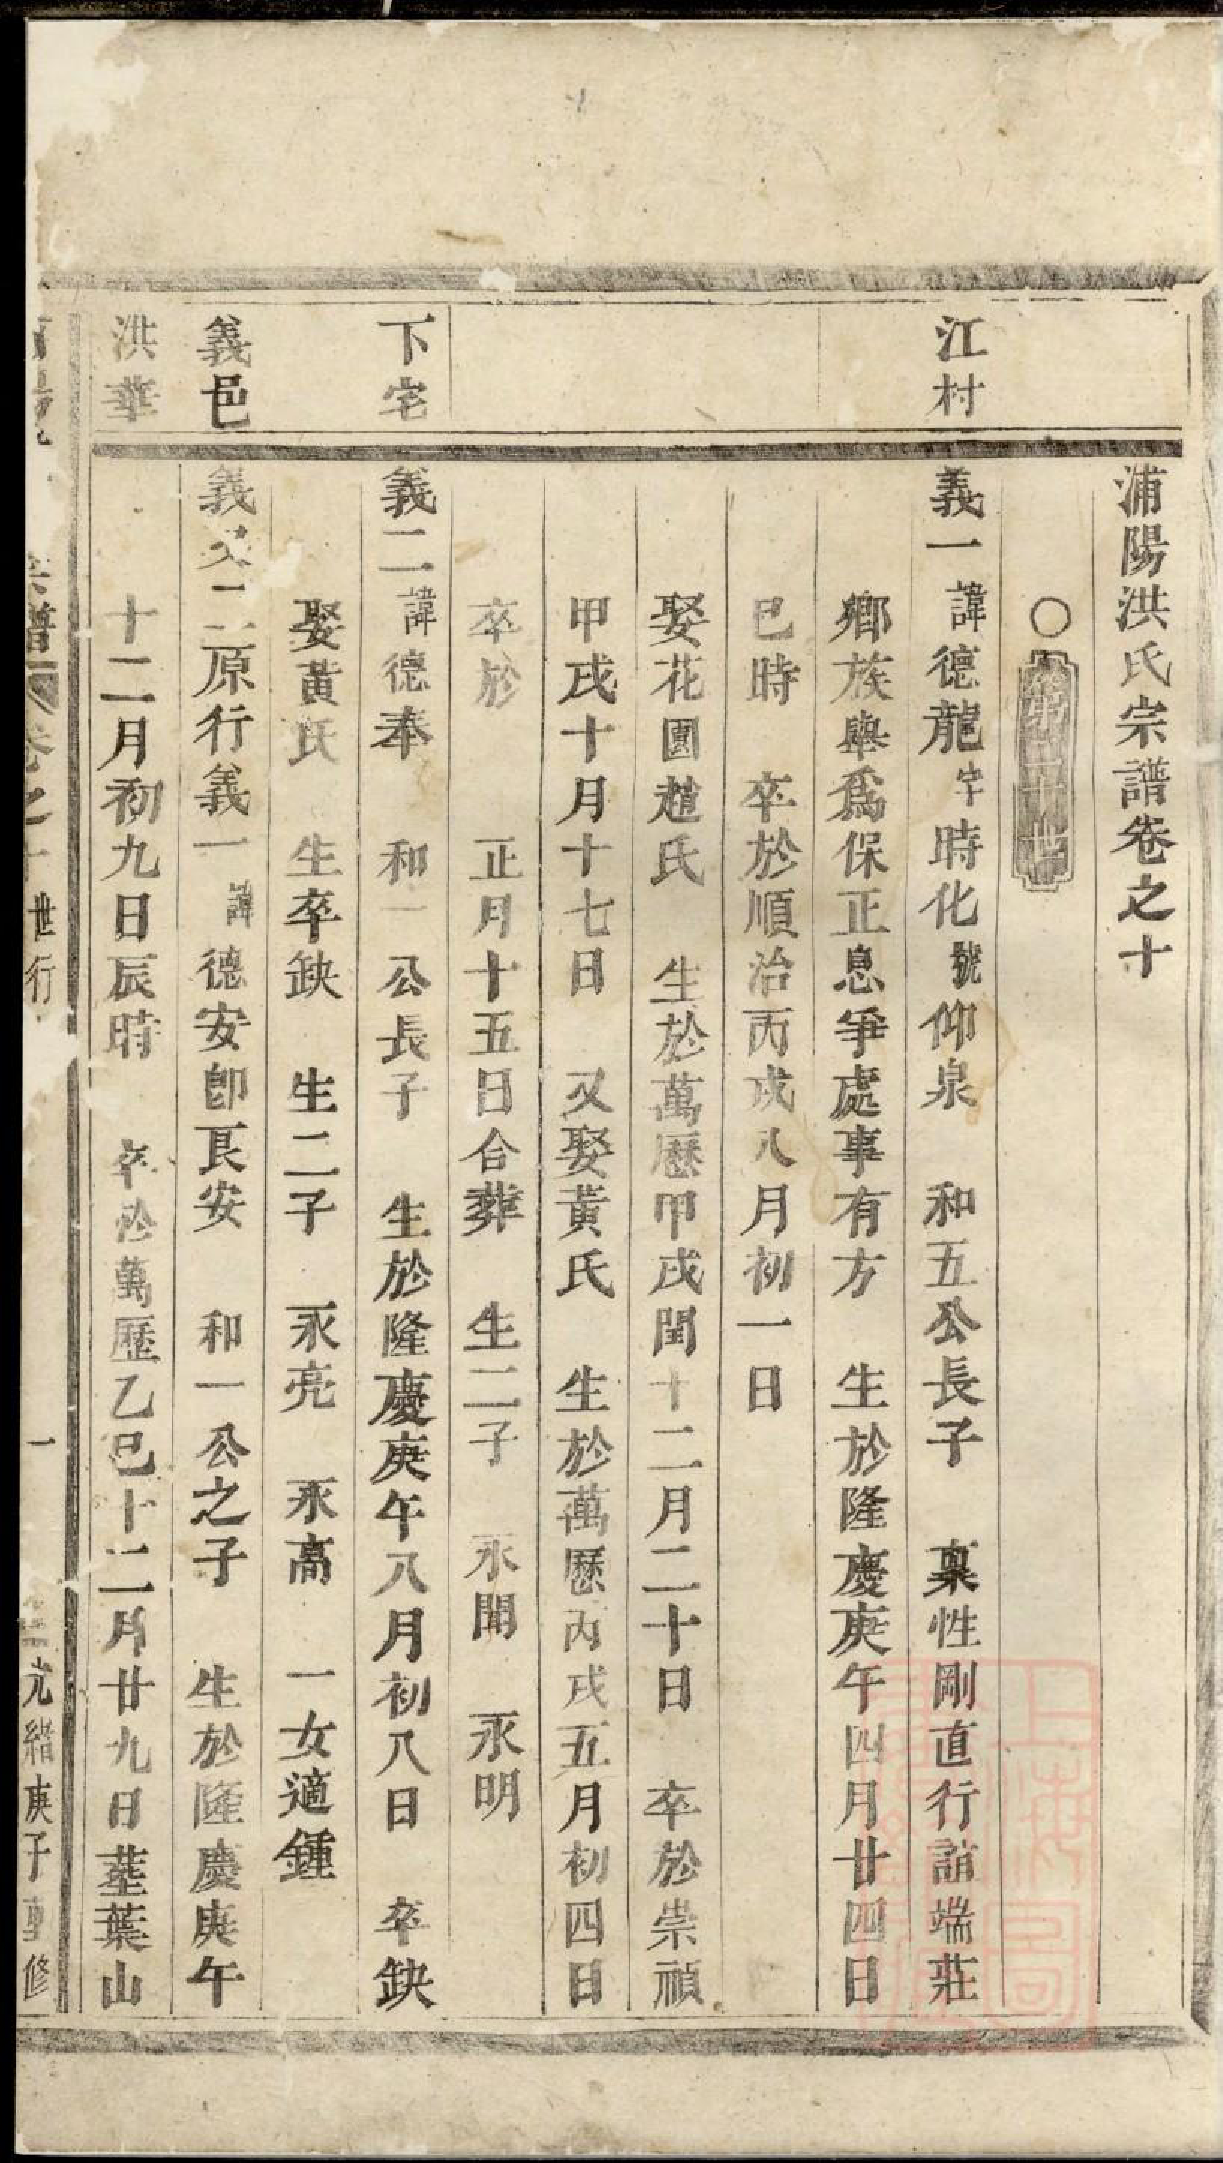 浦陽洪氏宗譜卷之十
○第二十世
江村
義一諱德龍字時化號仰泉 和五公長子 稟性剛直行誼端莊
鄉族舉爲保正息爭處事有方 生於隆慶庚午四月廿四日
巳時 卒於順治丙戌八月初一日
娶花園趙氏 生於萬歷甲戌閏十二月二十日 卒於崇禎
甲戌十月十七日 又娶黃氏 生於萬歷丙戌五月初四日
卒於 正月十五日合葬 生二子 永開 永明
下宅
義二諱德奉 和一公長子 生於隆慶庚午八月初八日 卒缺
娶黃氏 生卒缺 生二子 永亮 永高 一女適鍾
義邑
洪華
義又二原行義一諱德安卽艮安 和一公之子 生於隆慶庚午
十二月初九日辰時 卒於萬歷乙巳十二月廿九日塟葉山
宗譜 卷之十 世行 一 光緒庚子重修
上海圖